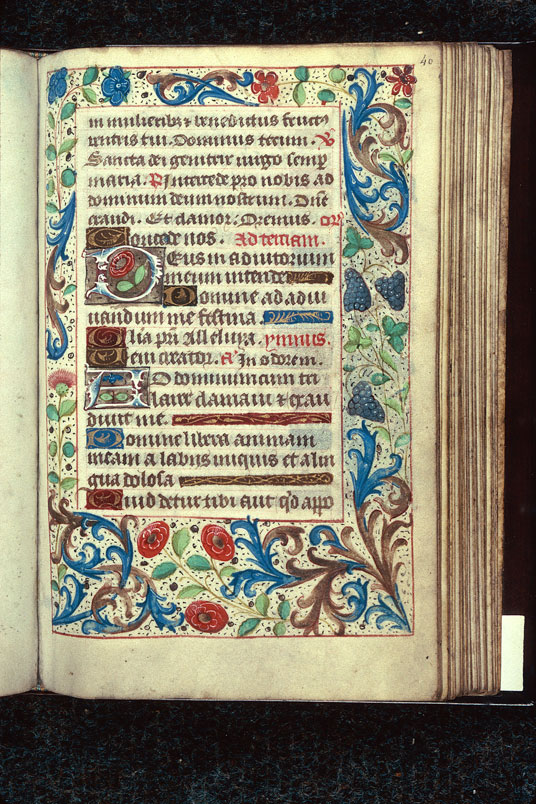 40
in mulieribꝫ ⁊ benedictus fruct9
ventris tui. Dominus tecum. V
Sancta dei genitrix virgo semp
maria. R Intercede pro nobis ad
dominum deum nostrum. Dñe
exaudi. Et clamor. Oremus. or
Concede nos. Ad terciam.
Deus in adiutorium
meum intende
Domine ad adiu
uandum me festina
Glia pri Alleluya. ymnus.
Veni creator. a In odorem.
AD dominum cum tri
bularer clamaui ⁊ exau
diuit me.
Domine libera animam
meam a labiis iniquis et a lin
gua dolosa
Quid detur tibi aut qd appo